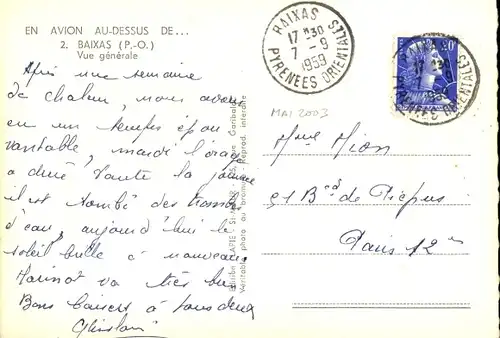 EN AVION AU-DESSUS DE...
2. BAIXAS (P.-O.)
Vue générale
Après une semaine
de chaleur, nous avons
eu un temps
mardi l'orage
a duré toute la journée
il est tombé des trombes
d'eau, aujourd'hui le
soleil brille à nouveau
va très bien
Bons baisers à tous deux
Ghislain
BAIXAS
17 H 30
7 - 9
1959
PYRENEES ORIENTALES
BAIXAS
PYRENEES ORIENTALES
20F
MAI 2003
Mme Mion
51 Bd de Picpus
Paris 12e
Véritable photo au bromure - Reprod. interdite